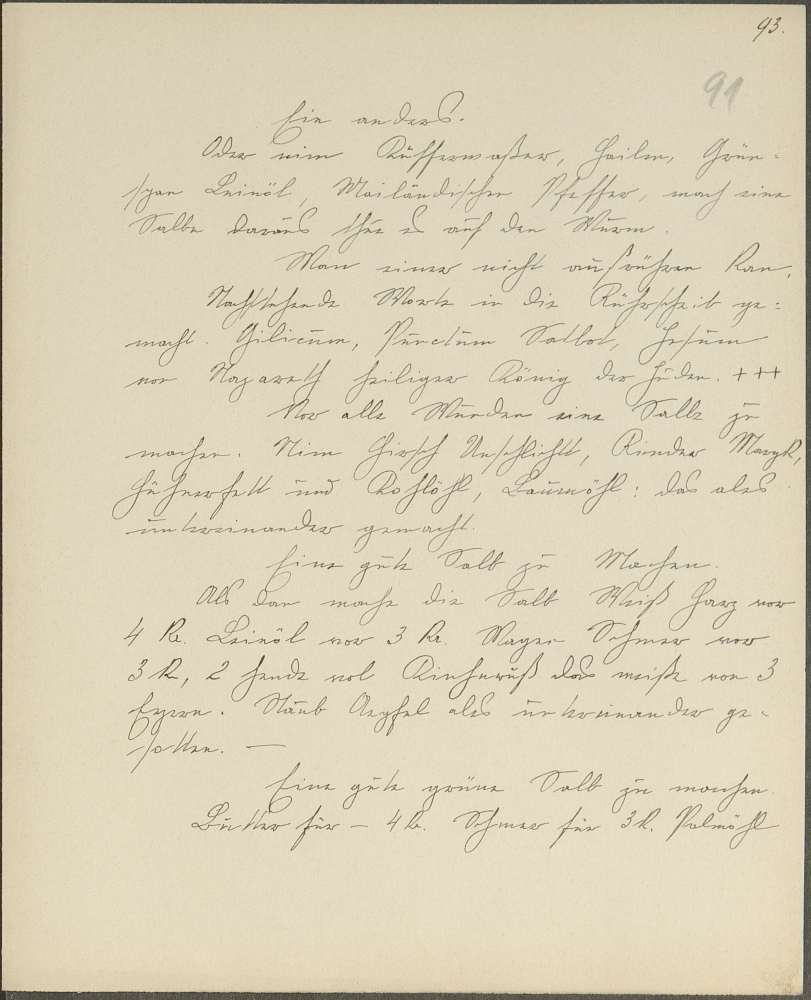 93.
91
Ein anders.
Oder nim Küfferwaßer, Hailen, Grün-
span Leinöl, Mailändischen Pfeffer, mach eine
Salbe daraus thue es auf den Wurm.
Wan einer nicht ausrühren kan.
Nachstehende Worte in die Rührscheib ge-
macht. Gilicum, Punctum Salbot, Jesum
von Nazareth heiliger König der Juden. +++
Vor alle Wunden eine Salbe zu
machen. Nim Hirsch Unschlichtt, Rinder Margk,
Hühnerfett und Kohlöhl, Baumöhl: das ales
untereinander gemacht.
Eine gute Salb zu Machen.
Als dan mache die Salb Weiß Harz vor
4 Kr. Leinöl vor 3 Kr. Wagen Schmer vor
3 K, 2 Hende vol Kienruß das weiße von 3
Eyern. Staub Aepfel ales untereinander ge-
sotten. —
Eine gute grüne Salb zu machen.
Butter für – 4 K. Schmer für 3 K. Palmöhl